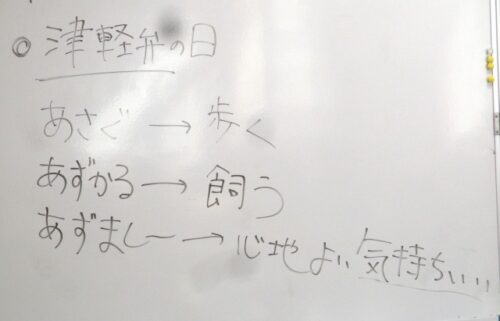 ◎ 津軽弁の日
あさぐ → 歩く
あずかる → 飼う
あずましー → 心地よい 気持ちいい